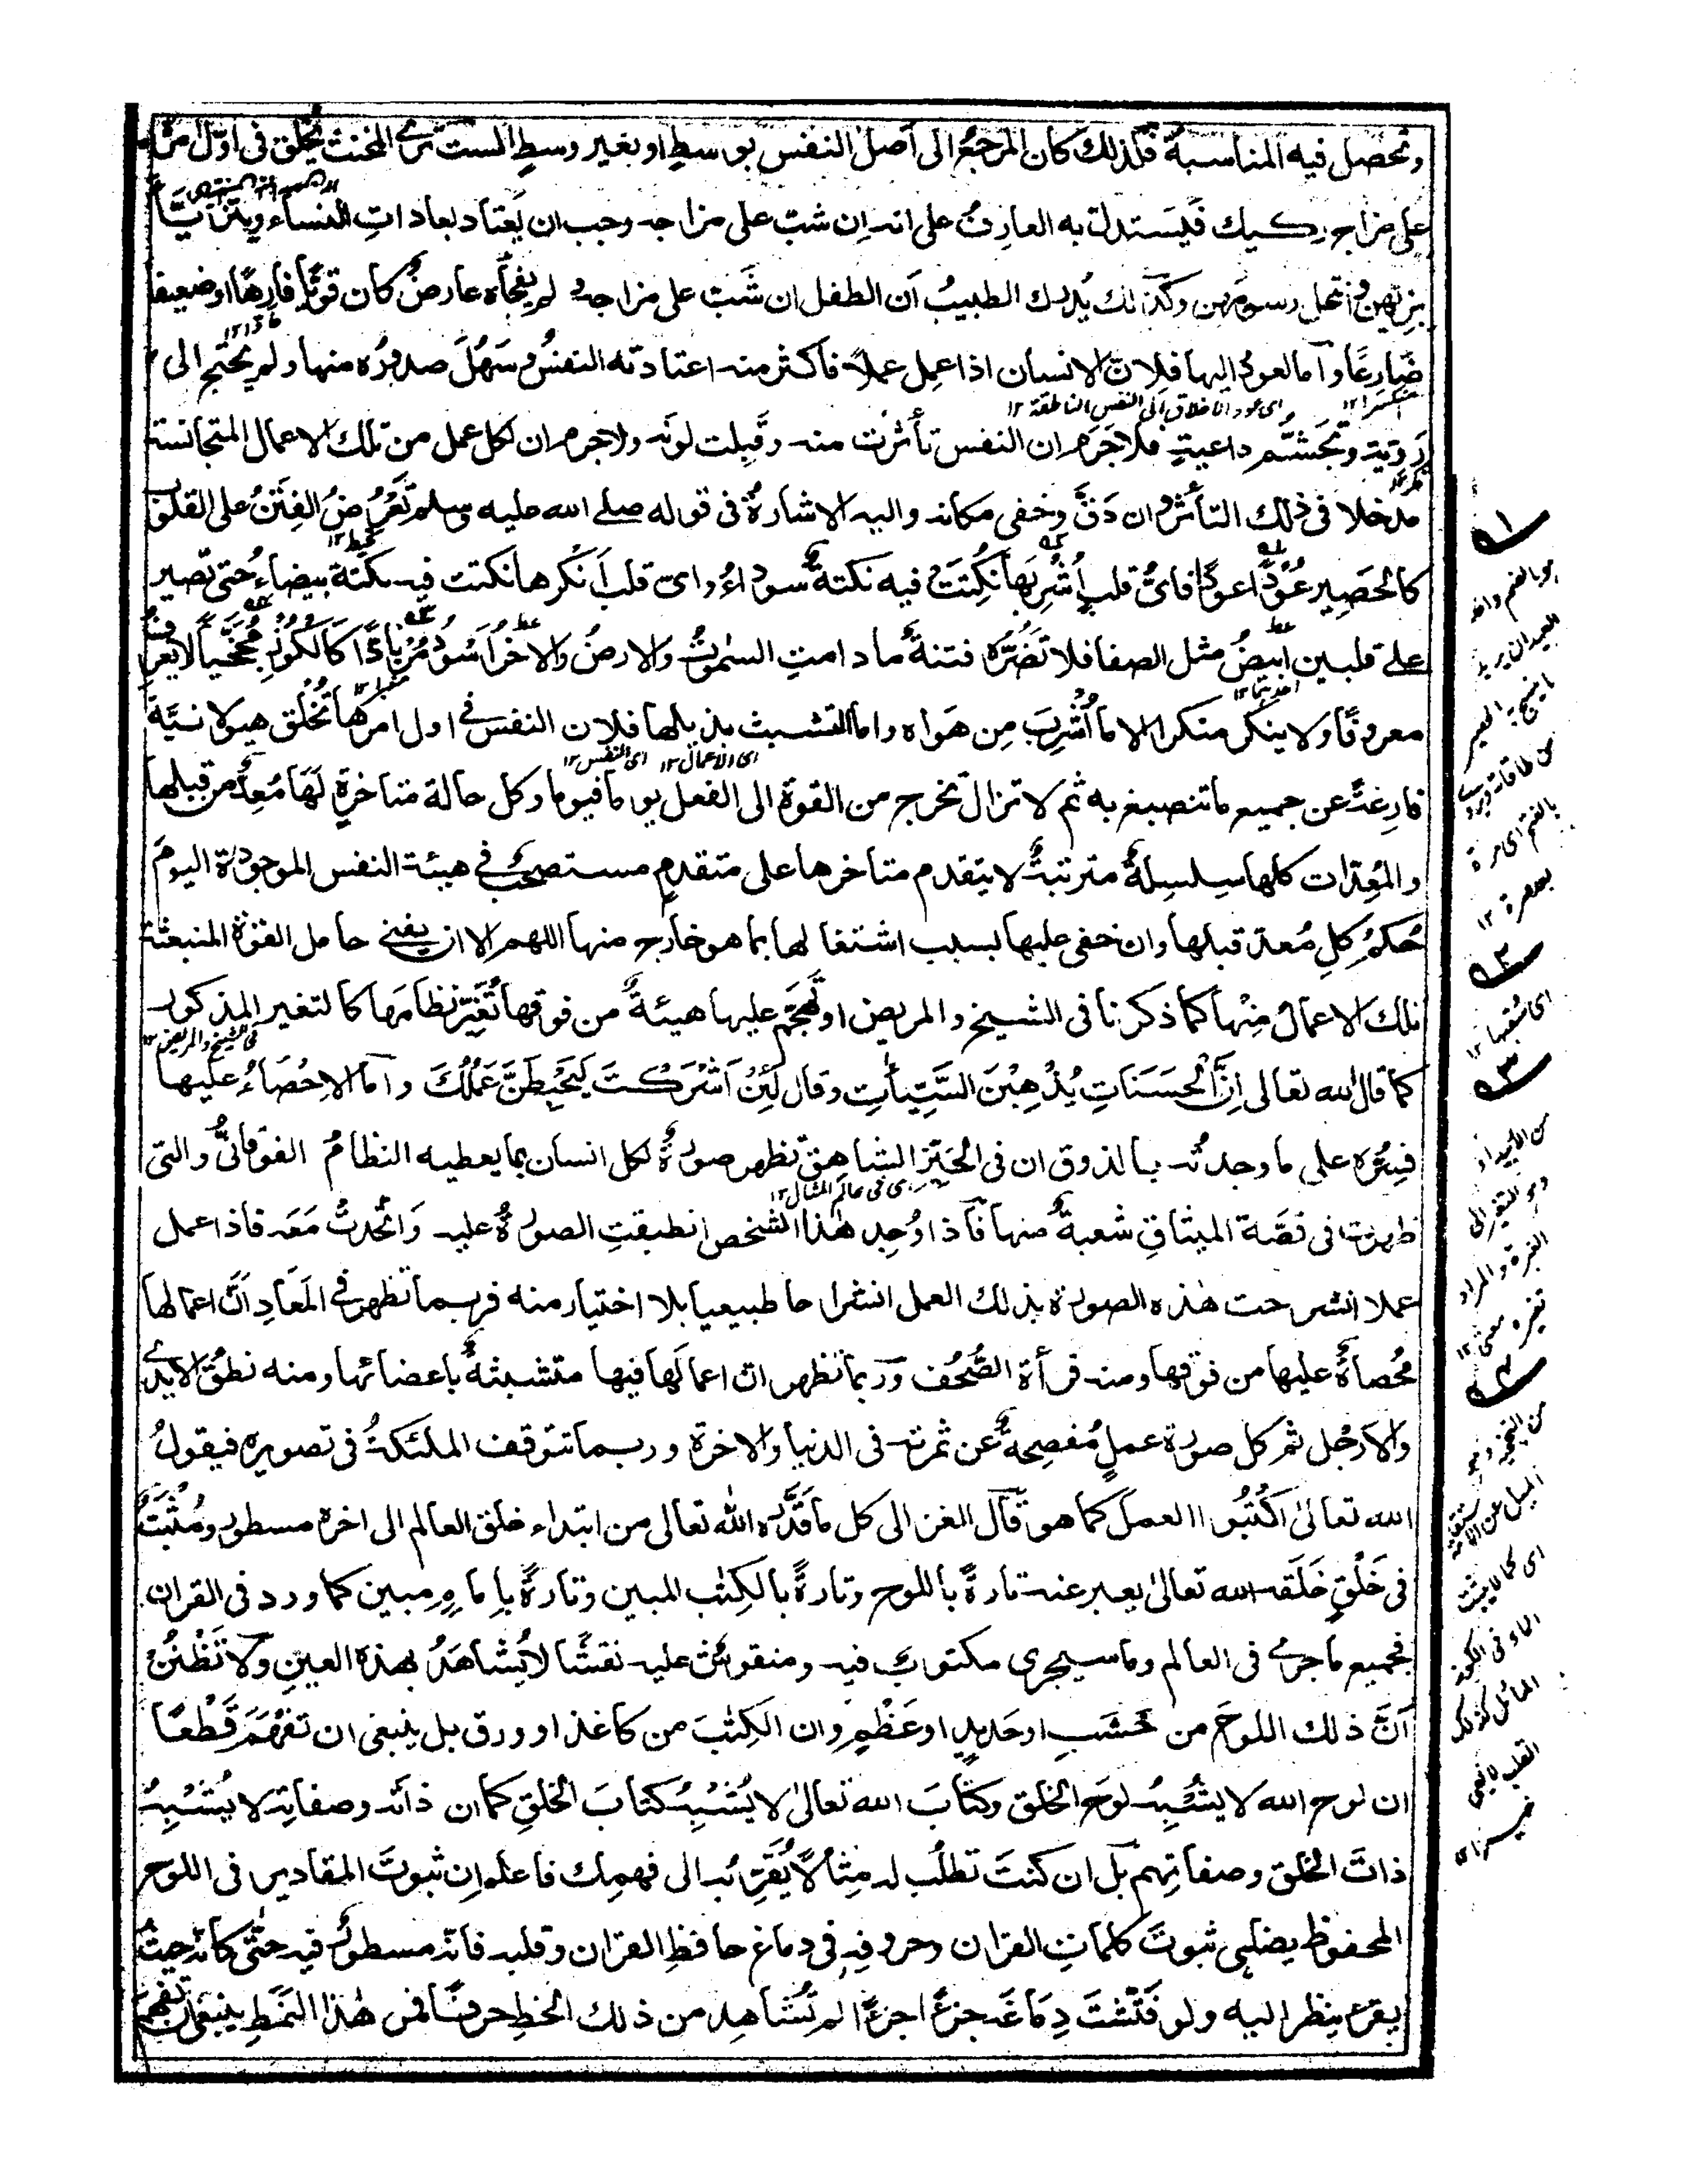 وتحصل فيه المناسبة فلذلك كان المرجع الى اصل النفس بواسطٍ او بغير وسطٍ الست ترى المخنث يُخلق فى اوّل امره
على مزاجٍ ركيك فيَستدلّ به العارِفُ على انه اِن شبّ على مزاجه وجب ان يَعتاد بعاداتِ النساء ويتزَيّا
بزِيّهن وينتحل رسومهن وكذلك يُدرك الطبيبُ اَن الطفل ان شَبّ على مزاجه ولم يفجأه عارضٌ كان قويًّا فارِهًا او ضعيفا
ضَارِعًا واَما العودُ اليها فلِانّ الانسان اذا عمِل عملاً فاَكثر منه اعتادته النفسُ وسَهُلَ صدورُه منها ولم يحتج الى
اى عود الاخلاق الى النفس الناطقة ١٢
رَوِيّةٍ وتجشُّم داعيةٍ فلا جَرَم ان النفس تأثرت منه وقَبِلت لونَه ولا جرم ان لكل عمل من تلك الاعمال المتجانسة
مدخلا فى ذلك التأثّر وان دَقَّ وخفى مكانه واليه الاشارةُ فى قوله صلے الله عليه وسلم تُعْرَضُ الفِتَنُ على القلوب
كالحَصِير عُوْدًا عودًا فاىُّ قلبٍ اُشْرِبَها نُكِتَتْ فيه نكتةٌ سوداءُ واىّ قلب اَنكرها نكتت فيه نكتة بيضاءُ حتى تصير
علے قلبين ابيضُ مثل الصفا فلا تضُرُّه فتنةٌ ما دامتِ السمٰوٰتُ والارضُ والاٰخرُ اَسْوَدُ مُرْبادًّا كَالكُوزِ مُجَخِّيًا لا يعرِفُ
معروفًا ولا ينكر منكرا الا ما اُشْرِبَ مِن هَواه واما التشبث بذيلها فلان النفس فے اول امرِها تُخْلَق هيولانيّةً
اى الاعمال ١٢ اى النفس ١٢
فارِغةً عن جميع ما تنصبغ به ثم لا تزال تخرج من القوة الى الفعل يوما فيوما وكل حالة متاخرةٍ لَهَا مُعِدٌّ من قبلها
والمُعِدّات كلها سِلسِلةٌ مترتبةٌ لا يتقدم متاخرها على متقدمٍ مستصحَبٌ فے هيئة النفس الموجودة اليومَ
حُكمُ كلِ مُعدّ قبلها وان خفى عليها بسبب اشتغالها بما هو خارج منها اللهم الا ان يفنى حامل القوة المنبعثة
تلك الاعمالُ مِنها كما ذكرنا فى الشيخ والمريض او تَهجُم عليها هيئةٌ من فوقها تُغَيِّرُ نظامَها كالتغير المذكور
فى الشيخ والمريض ١٢
كما قال الله تعالى اِنَّ الْحَسَنَاتِ يُذْهِبْنَ السَّيِّئاتِ وقال لَئِنْ اَشْرَكْتَ لَيَحْبَطَنَّ عَمَلُكَ واَما الاِحْصَاءُ عليها
فسِرُّه على ما وجدتُه بالذوق ان فى الحَيّزِ الشاهقِ تظهر صورةٌ لكل انسان بما يعطيه النظامُ الفوقانىُّ والتى
اى فى عالم المثال ١٢
ظهرت فى قصّة الميثاقِ شعبةٌ منها فاذا وُجِد هٰذا الشخص انطبقتِ الصورةُ عليه وَاتّحدتْ مَعَه فاذا عمل
عملا انشرحت هٰذه الصورة بذلك العمل انشراحا طبيعيا بلا اختيار منه فربما تظهر فے المَعَادِ اَنّ اعمالها
مُحصاةٌ عليها من فوقها ومنه قرأة الصُّحُف وربما تظهر ان اعمالَها فيها متشبثةٌ باعضائها ومنه نطقُ الايدے
والاَرجُل ثم كل صورة عملٍ مُفصِحةٌ عن ثمرته فى الدنيا والاخرة وربما تتوقف الملئكةُ فى تصويره فيقولُ
الله تعالىٰ اُكتُبُوا العملَ كما هو قال الغزالى كل ما قَدَّره الله تعالى من ابتداء خلق العالم الى اخره مسطور ومُثبَتٌ
فى خَلْقٍ خَلَقَه الله تعالىٰ يعبر عنه تارةً باللوح وتارةً بالكِتٰب المبين وتارةً بِامامٍ مبين كما ورد فى القران
فجميع ما جرٰے فى العالم وما سيجرى مكتوبٌ فيه ومنقوشٌ عليه نقشًا لا يُشاهَدُ بهذه العينِ ولا تَظُنَنَّ
اَنَّ ذلك اللوحَ من خشَبٍ او حَديدٍ او عَظْمٍ وان الكِتٰبَ من كاغذ او ورق بل ينبغى ان تفهَمَ قَطْعًا
ان لوح الله لا يشْبِهُ لوحَ الخلق وكتابَ الله تعالىٰ لا يُشْبِهُ كتابَ الخلقِ كما ان ذاتَه وصفاتِه لا يُشْبِهُ
ذاتَ الخلق وصفاتِهم بل ان كنتَ تطلُب له مِثالاً يُقَرِّبُه الى فهمِك فاعلم ان ثبوتَ المقادير فى اللوح
المحفوظ يضاهى ثبوتَ كلماتِ القران وحروفِه فى دماغ حافظِ القران وقلبه فانّه مسطورٌ فيه حتّى كانّه حيث
يقرء ينظر اليه ولو فَتّشتَ دِماغَه جزءًا جزءًا لم تُشاهِد من ذلك الخطِ حرفًا فمن هٰذا النمَطِ ينبغى ان تفهم
١
هو بالضم واحد
العيدان يريد
ما ينسج به الحصير
من طاقاته
بالفتح اى مرة
بعد مرة ١٢
٢
اى سُقيها ١٢
٣
من الاربداد
وهو التغير الى
الغبرة والمراد
تغيره معنى ١٢
٤
من التجخية وهو
الميل عن الاستقامة
اى كما لا يثبت
الماء فى الكوز
المائل كذلك
القلب لا يعى
خيرا ١٢